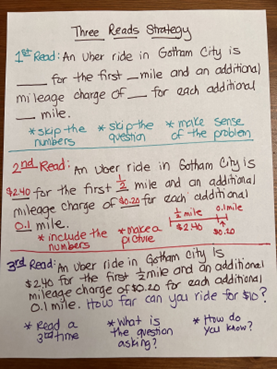 Three Reads Strategy
1st Read: An Uber ride in Gotham City is
____ for the first __mile and an additional
mileage charge of ___ for each additional
___ mile.
* skip the numbers * skip the question * make sense of the problem
2nd Read: An Uber ride in Gotham City is
$2.40 for the first 1/2 mile and an additional
mileage charge of $0.20 for each additional
0.1 mile.
1/2 mile 0.1mile
$2.40 $0.20
* include the numbers * make a picture
3rd Read: An Uber ride in Gotham City is
$2.40 for the first 1/2 mile and an additional
mileage charge of $0.20 for each additional
0.1 mile. How far can you ride for $10?
* Read a 3rd time * What is the question asking? * How do you know?